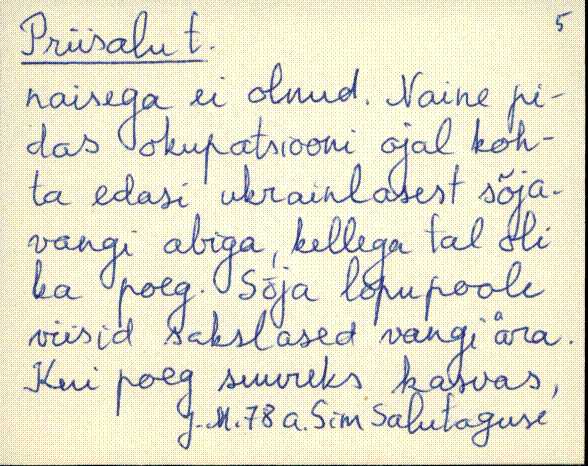 5
Priisalu t.
naisega ei olnud. Naine pi-
das okupatsiooni ajal koh-
ta edasi ukrainlasest sõja-
vangi abiga, kellega tal oli
ka poeg. Sõja lõpupoole
viisid sakslased vangi ära.
Kui poeg suureks kasvas,
J. M. 78 a. Sim Salutaguse